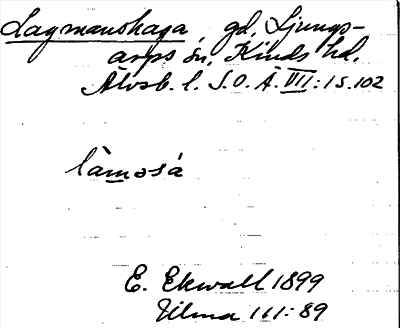 Lagmanshaga, gd, Ljungs-
arps sn, Kinds hd.
Älvsb. l. S.O.Ä. VII:1 s. 102
E. Ekwall 1899
Ulma 111:89